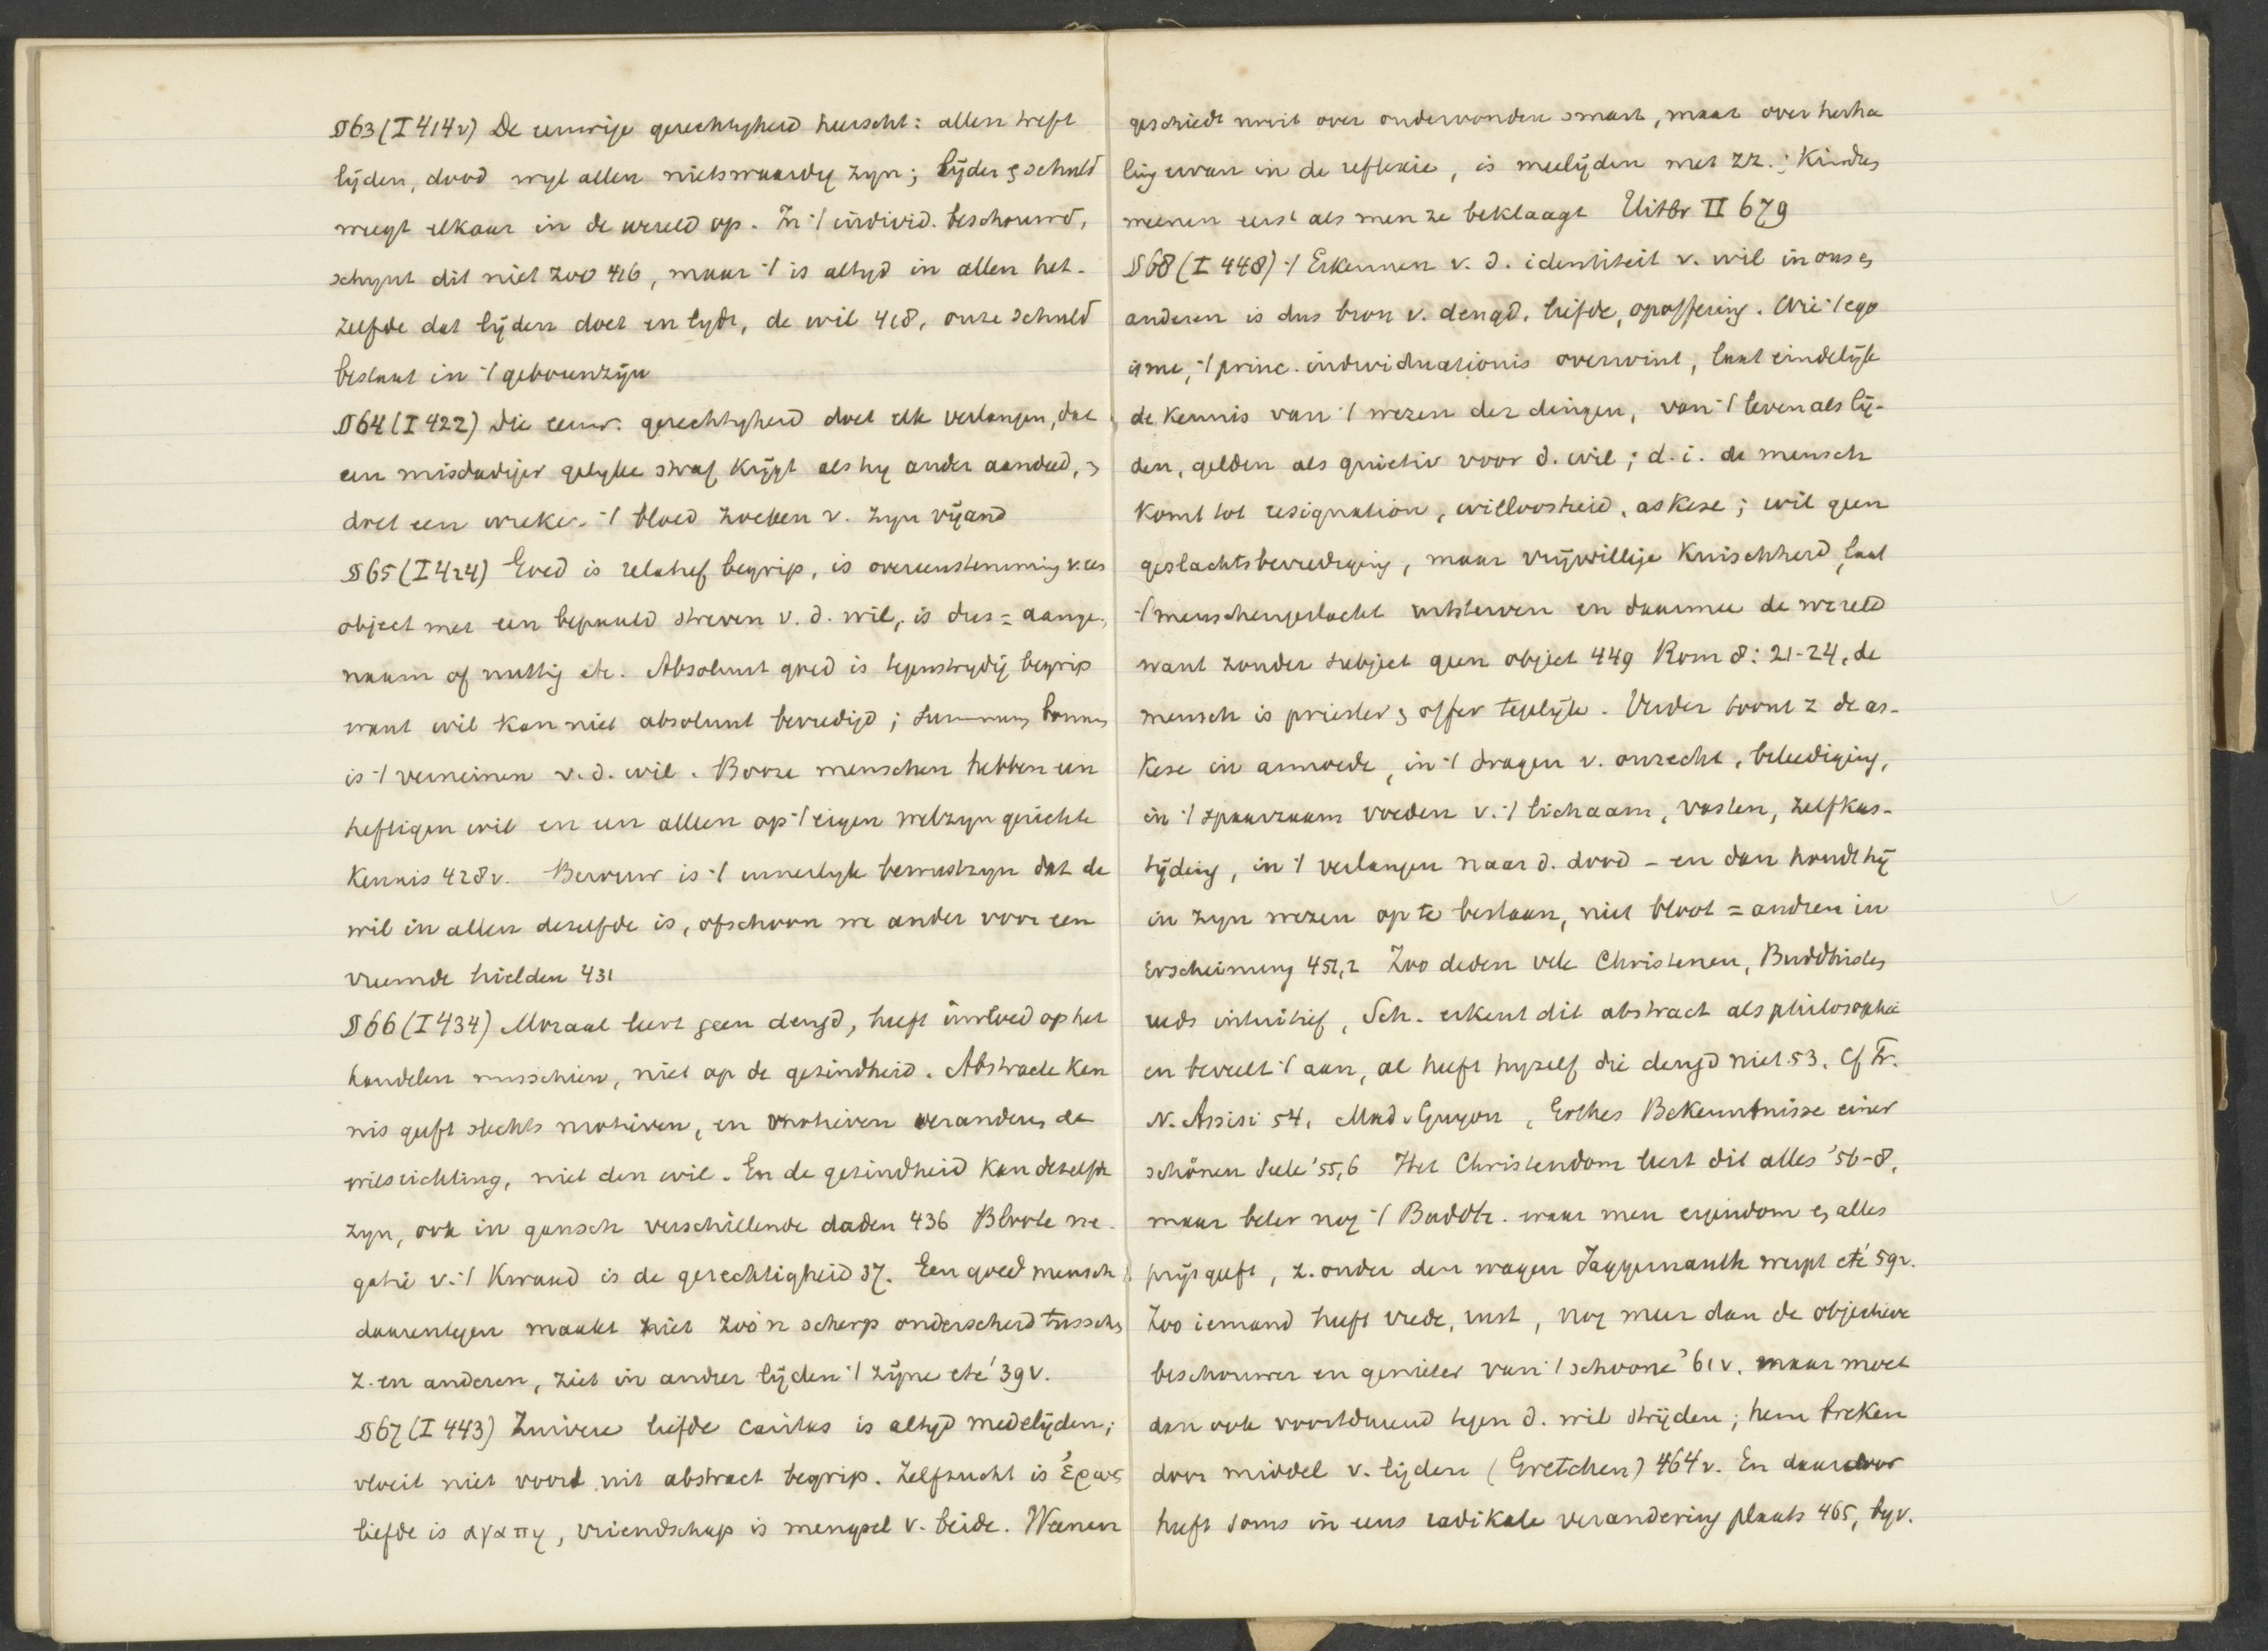 §63 (I 414v) De eeuwige gerechtigheid heerscht: allen treft
lijden, dood wyl allen nietswaardig zyn; lijden & schuld
weegt elkaar in de wereld op. In 't individ. beschouwd,
schynt dit niet zoo 416, maar 't is altyd in allen het-
zelfde dat lijden doet en lydt, de wil 418, onze schuld
bestaat in 't geborenzijn
§64 (I 422) Die eeuw. gerechtigheid doet elk verlangen, dat
een misdadiger gelyke straf krijgt als hy ander aandeed, &
doet een wreker 't bloed zoeken v. zyn vijand
§65 (I 424) Goed is relatief begrip, is overeenstemming v. een
object met een bepaald streven v. d. wil, is dus = aange-
naam of nuttig etc. Absoluut goed is tegenstrydig begrip
want wil kan niet absoluut bevredigd; summum bonum
is 't verneinen v. d. wil. Booze menschen hebben een
heftigen wil en een alleen op 't eigen welzyn gerichte
kennis 428v. Berouw is 't innerlyk bewustzyn dat de
wil in allen dezelfde is, ofschoon we ander voor een
vreemde hielden 431
§66 (I 434) Moraal leert geen deugd, heeft invloed op het
handelen misschien, niet op de gezindheid. Abstracte ken
nis geeft slechts motieven, en motieven veranderen de
wilsrichting, niet den wil. En de gezindheid kan dezelfde
zyn, ook in gansch verschillende daden 436 Bloote ne-
gatie v. 't kwaad is de gerechtigheid 37. Een goed mensch
daarentegen maakt niet zoo'n scherp onderscheid tusschen
z. en anderen, ziet in andrer lijden 't zijne etc '39v.
§67 (I 443) Zuivere liefde caritas is altyd medelijden;
vloeit niet voort uit abstract begrip. Zelfzucht is ἔρως
liefde is αγαπη, vriendschap is mengsel v. beide. Weenen
geschiedt nooit over ondervonden smart, maar over herha
ling ervan in de reflexie, is meelijden met zz.; Kinderen
weenen eerst als men ze beklaagt Uitbr II 679
§68 (I 448) 't Erkennen v. d. identiteit v. wil in ons en
anderen is dus bron v. deugd, liefde, opoffering. Wie 't ego
isme, 't princ. individuationis overwint, laat eindelijk
de kennis van 't wezen der dingen, van 't leven als lij-
den, gelden als quietiv voor d. wil; d.i. de mensch
komt tot resignation, willoosheid, askese; wil geen
geslachtsbevrediging, maar vrijwillige kuischheid, laat
't menschengeslacht uitsterven en daarmee de wereld
want zonder subject geen object 449 Rom 8: 21-24, de
mensch is priester & offer tegelijk. Verder toont z de as-
kese in armoede, in 't dragen v. onrecht, beleediging,
in 't spaarzaam voeden v. 't lichaam, vasten, zelfkas-
tijding, in 't verlangen naar d. dood - en dan houdt hij
in zyn wezen op te bestaan, niet bloot = andren in
Erscheinung 451,2 Zoo deden vele Christenen, Buddhisten
reeds intuitief, Sch. erkent dit abstract als philosophie
en beveelt 't aan, al heeft hyzelf die deugd niet 53. Cf Fr.
v. Assisi 54, Mad. Guyon, Göthes Bekenntnisse einer
schönen Seele '55,6 Het Christendom leert dit alles '56-8,
maar beter nog 't Buddh. waar men eigendom en alles
prijsgeeft, z. onder den wagen Jaggernauth werpt etc '59v.
Zoo iemand heeft vrede, rust, nog meer dan de objectieve
beschouwer en genieter van 't schoone '61v. maar moet
dan ook voortdurend tegen d. wil strijden; hem breken
door middel v. lijden (Gretchen) 464v. En daardoor
heeft soms in eens radikale verandering plaats 465, byv.